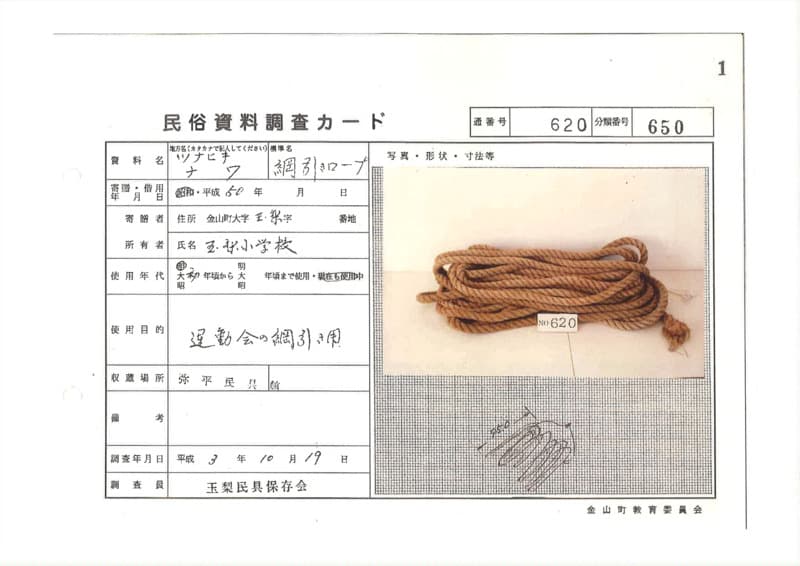 1
民俗資料調査カード
通番号 620 分類番号 650
資料名 地方名(カタカナで記入してください) ツナヒキナワ 標準名 綱引きロープ
写真・形状・寸法等
寄贈・借用年月日 昭和・平成 50 年 月 日
寄贈者 住所 金山町大字 玉梨 字 番地
所有者 氏名 玉梨小学校
使用年代 明大昭 初 年頃から 明大昭 年頃まで使用・現在も使用中
NO 620
使用目的 運動会の綱引き用
収蔵場所 弥平民具館
備考
55.0
調査年月日 平成 3 年 10 月 19 日
調査員 玉梨民具保存会
金山町教育委員会